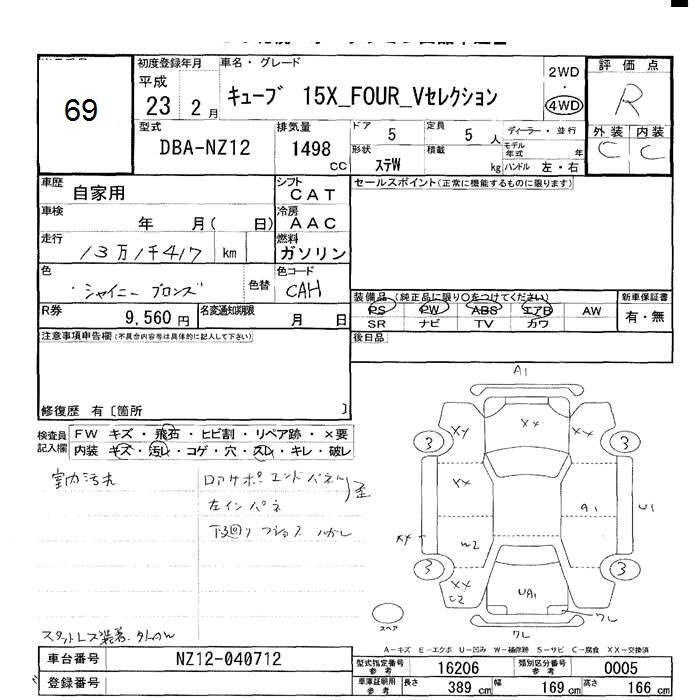 69
初度登録年月
平成
23 2 月
車名・グレード
キューブ 15X_FOUR_Vセレクション
2WD
・
4WD
評価点
R
外装 内装
C C
型式
DBA-NZ12
排気量
1498
CC
ドア 5
定員 5 人
ディーラー・並行
形状 ステW
積載 kg
モデル年式 年
ハンドル 左・右
車歴
自家用
シフト
CAT
セールスポイント(正常に機能するものに限ります)
車検
年 月( 日)
冷房
AAC
走行
13万1千417 km
燃料
ガソリン
色
シャイニーブロンズ
色替
色コード
CAH
装備品 (純正品に限り○をつけてください)
PS PW ABS エアB AW
SR ナビ TV カワ
新車保証書
有・無
R券
9,560 円
名変通知期限
月 日
後日品
注意事項申告欄(不具合内容等は具体的に記入して下さい)
修復歴 有〔箇所 〕
検査員記入欄
FW キズ・飛石・ヒビ割・リペア跡・×要
内装 キズ・汚レ・コゲ・穴・スレ・キレ・破レ
室内汚れ
リアサポ エンドパネル
左インパネ
下廻り
A1
XX
XY
XX
3
3
XX
A1
U1
XY
W2
3
3
XX
C2
UA1
ワレ
ワレ
スペア
スタットレス装着
A-キズ E-エクボ U-凹み W-補修跡 S-サビ C-腐食 XX-交換済
車台番号
NZ12-040712
登録番号
型式指定番号 参考
16206
類別区分番号 参考
0005
車庫証明用 参考
長さ 389 cm
幅 169 cm
高さ 166 cm